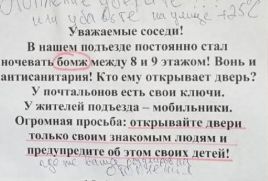 или уже есть на улице +25°
Уважаемые соседи!
В нашем подъезде постоянно стал
ночевать бомж между 8 и 9 этажом! Вонь и
антисанитария! Кто ему открывает дверь?
У почтальонов есть свои ключи.
У жителей подъезда – мобильники.
Огромная просьба: открывайте двери
только своим знакомым людям и
предупредите об этом своих детей!